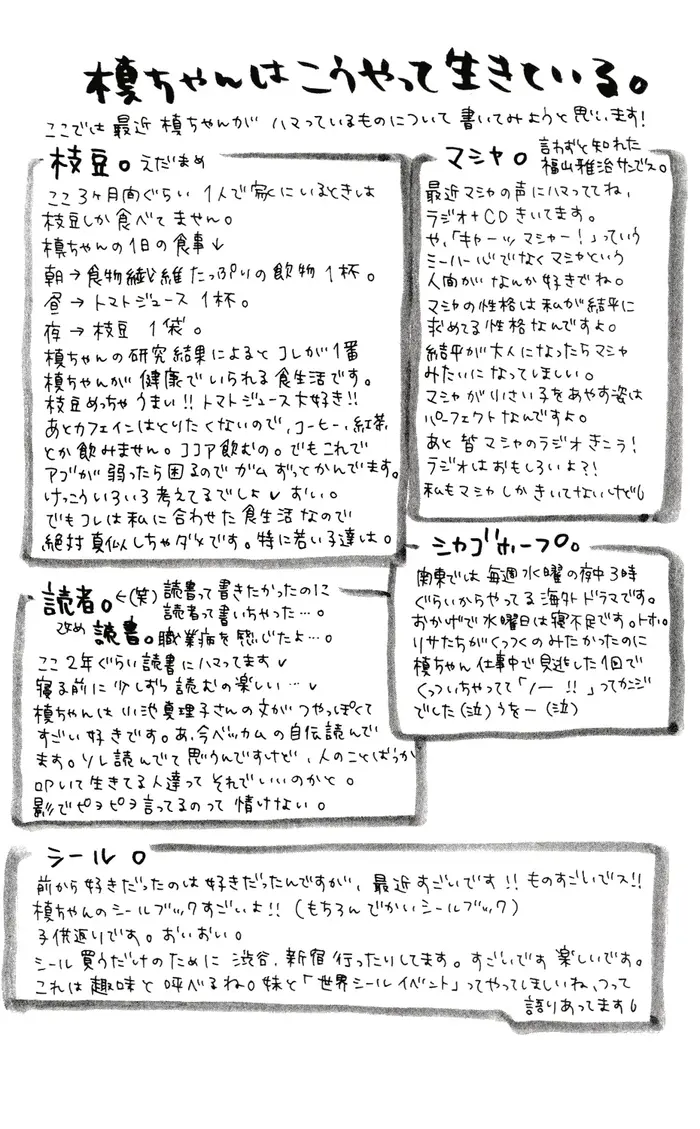 槙ちゃんはこうやって生きている。
ここでは最近槙ちゃんがハマっているものについて書いてみようと思います!
枝豆。えだまめ
ここ3ヶ月間ぐらい1人で家にいるときは
枝豆しか食べてません。
槙ちゃんの1日の食事↓
朝→食物繊維たっぷりの飲物1杯。
昼→トマトジュース1杯。
夜→枝豆1袋。
槙ちゃんの研究結果によるとコレが1番
槙ちゃんが健康でいられる食生活です。
枝豆めっちゃうまい!!トマトジュース大好き!!
あとカフェインはとりたくないので、コーヒー、紅茶
とか飲みません。ココア飲むの。でもこれで
アゴが弱ったら困るのでガムずっとかんでます。
けっこういろいろ考えてるでしょ おい。
でもコレは私に合わせた食生活なので
絶対真似しちゃダメです。特に若い子達は。
マシャ。言わずと知れた
福山雅治サンでス。
最近マシャの声にハマっててね、
ラジオ+CDきいてます。
や、「キャーッマシャー!」っていう
ミーハー心でなくマシャという
人間がなんか好きでね。
マシャの性格は私が結平に
求めてる性格なんですよ。
結平が大人になったらマシャ
みたいになってしほしい。
マシャが小さい子をあやす姿は
パーフェクトなんですよ。
あと皆マシャのラジオきこう!
ラジオはおもしろいよ?!
私もマシャしかきいてないけど
シカゴホープ。
関東では毎週水曜の夜中3時
ぐらいからやってる海外ドラマです。
おかげで水曜日は寝不足です。トホ。
リサたちがくっつくのみたかったのに
槙ちゃん仕事中で見逃した1回で
くっついちゃってて「ノー!!」ってカンジ
でした(泣)うをー(泣)
読者。←(笑)読書って書きたかったのに
読者って書いちゃった…。
改め読書。職業病を感じたよ…。
ここ2年ぐらい読書にハマってます
寝る前に少しずつ読むの楽しい…
槙ちゃんは小池真理子さんの文がつやっぽくて
すごい好きです。あ、今ベッカムの自伝読んで
ます。ソレ読んでて思うんですけど、人のことばっか
叩いて生きてる人達ってそれでいいのかと。
影でピヨピヨ言ってるのって情けない。
シール。
前から好きだったのは好きだったんですが、最近すごいです!!ものすごいでス!!
槙ちゃんのシールブックすごいよ!!(もちろんでかいシールブック)
子供返りです。おいおい。
シール買うだけのために渋谷、新宿行ったりしてます。すごいです楽しいです。
これは趣味と呼べるね。妹と「世界シールイベント」ってやってほしいね、つって
語りあってます